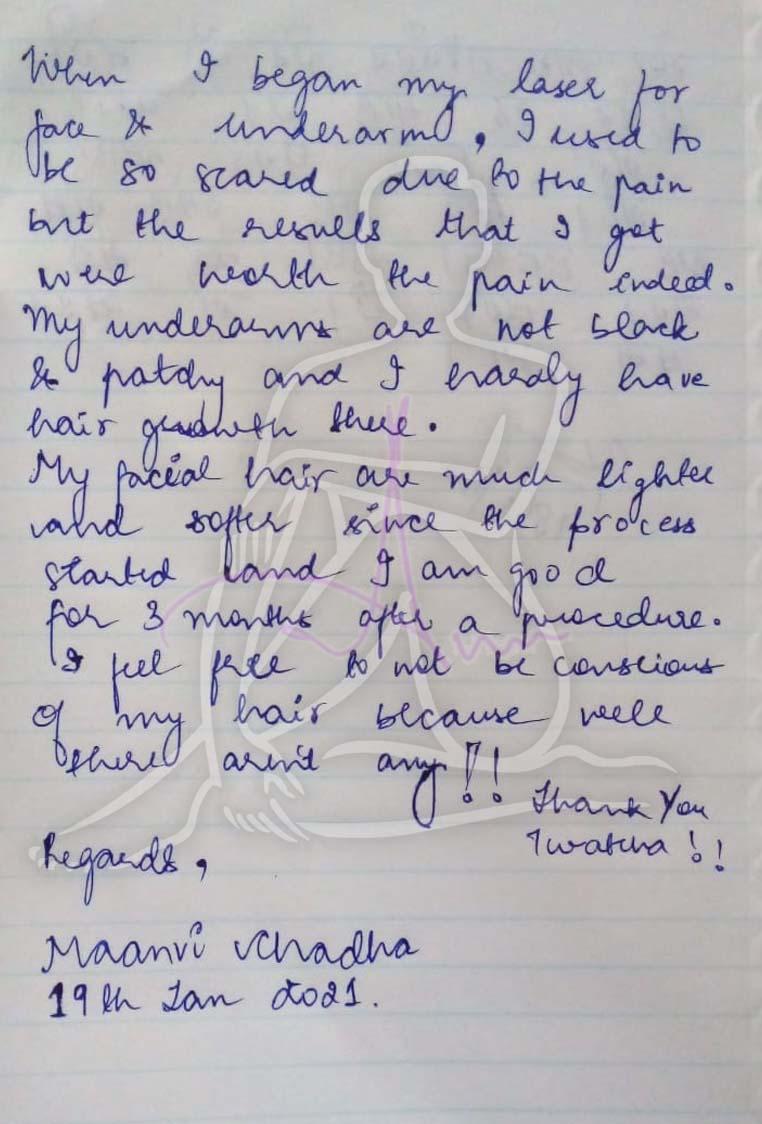 When I began my laser for
face & underarms, I used to
be so scared due to the pain
but the results that I got
were worth the pain indeed.
My underarms are not black
& patchy and I hardly have
hair growth there.
My facial hair are much lighter
and softer since the process
started and I am good
for 3 months after a procedure.
I feel free to not be conscious
of my hair because well
there aren't any!!
Thank You
Twatcha!!
Regards,
Maanvi Chadha
19th Jan 2021.